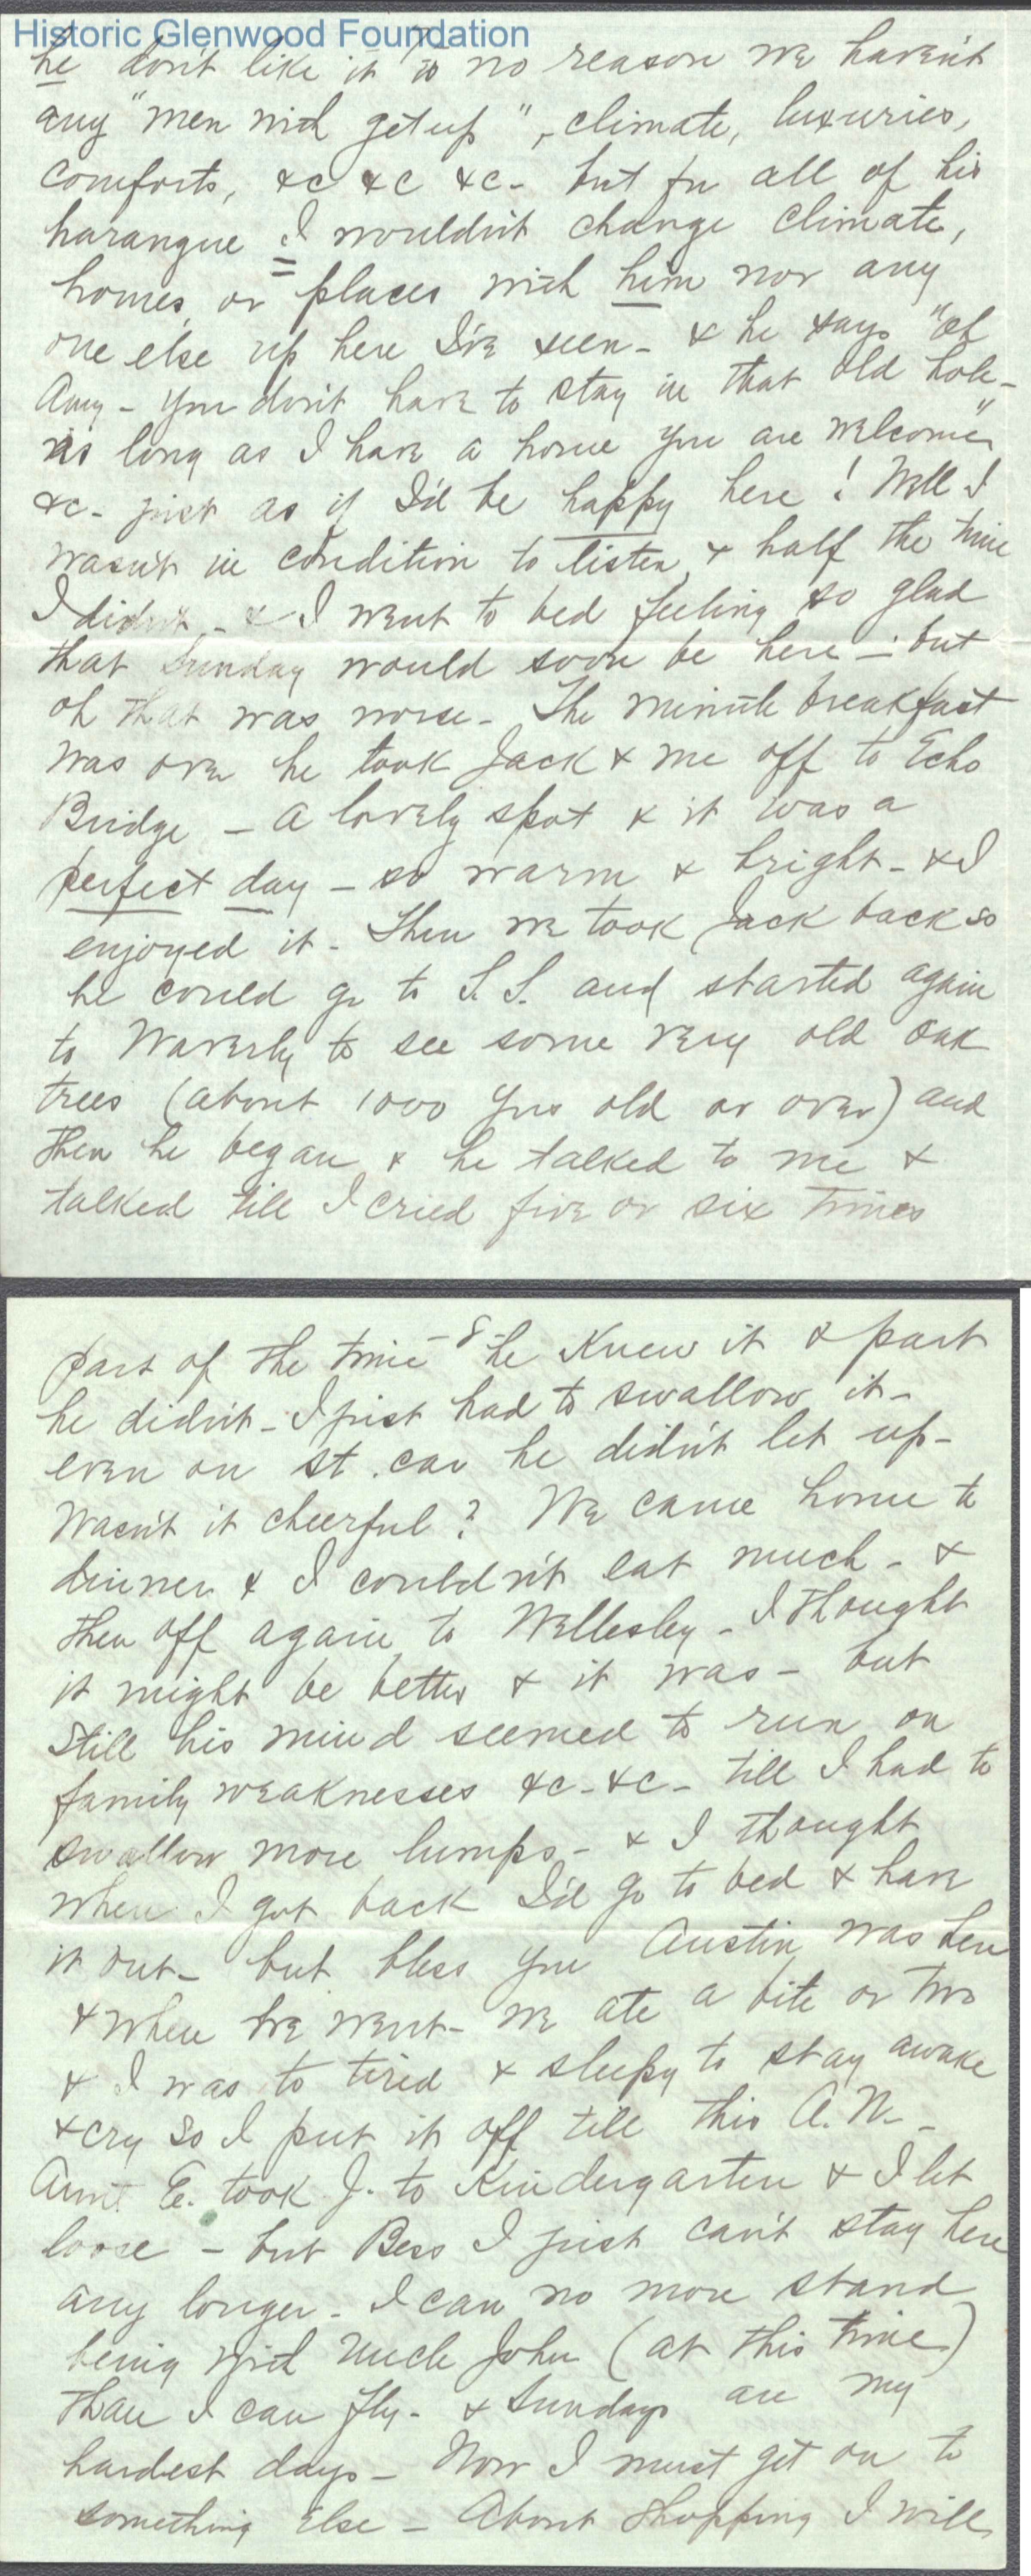 Historic Glenwood Foundation
he don't like it is no reason we haven't
any "men with get up", climate, luxuries,
comforts, &c &c &c - but for all of his
harangue I wouldn't change climate,
homes, or places with him nor any
one else up here I've seen - & he says "oh
Amy - you don't have to stay in that old hole -
as long as I have a home you are welcome"
&c - just as if I'd be happy here! Well I
wasn't in condition to listen, & half the time
I didn't - & I went to bed feeling so glad
that Sunday would soon be here - but
oh that was worse - The minute breakfast
was over he took Jack & me off to Echo
Bridge - a lovely spot & it was a
perfect day - so warm & bright - & I
enjoyed it - Then we took Jack back so
he could go to S. S. and started again
to Waverly to see some very old oak
trees (about 1000 yrs old or over) and
then he began & he talked to me &
talked till I cried five or six times
8
part of the time - he knew it & part
he didn't - I just had to swallow it -
even on st. car he didn't let up -
Wasn't it cheerful? We came home to
dinner & I couldn't eat much - &
then off again to Wellesley - I thought
it might be better & it was - but
still his mind seemed to run on
family weaknesses &c - &c - till I had to
swallow more lumps - & I thought
when I got back I'd go to bed & have
it out - but bless you Austin was here
& when he went - we ate a bite or two
& I was to tired & sleepy to stay awake
& cry so I put it off till this A.M. -
Aunt E. took J. to Kindergarten & I let
loose - but Bess I just can't stay here
any longer - I can no more stand
being with Uncle John (at this time)
than I can fly - & Sundays are my
hardest days - Now I must get on to
something else - About shopping I will